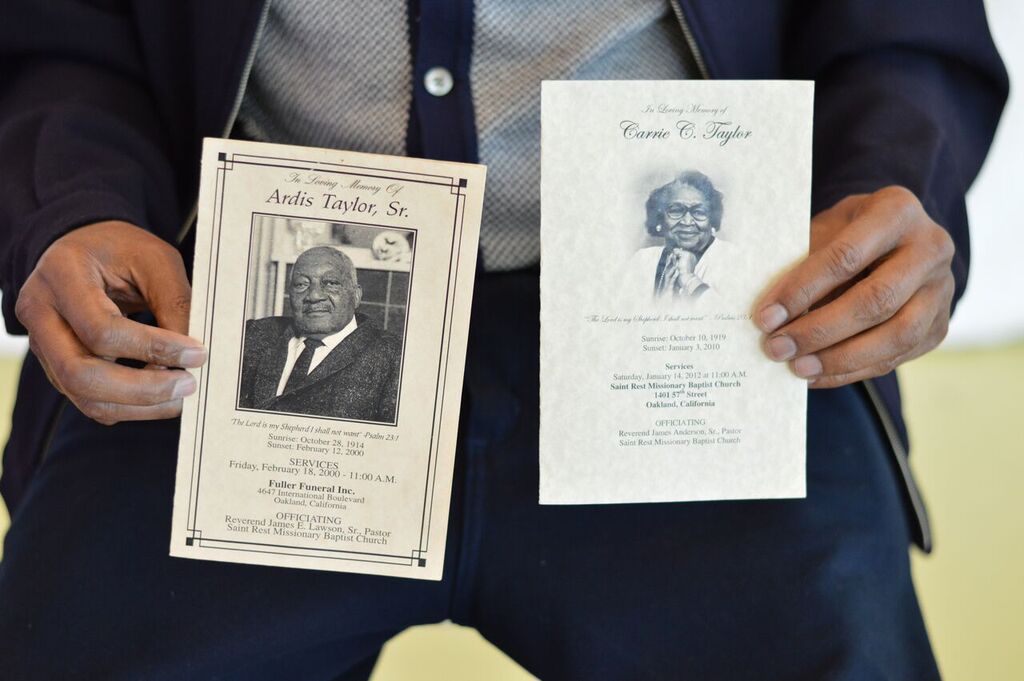 In Loving Memory Of
Ardis Taylor, Sr.
"The Lord is my Shepherd I shall not want" -Psalm 23:1
Sunrise: October 28, 1914
Sunset: February 12, 2000
SERVICES
Friday, February 18, 2000 - 11:00 A.M.
Fuller Funeral Inc.
4647 International Boulevard
Oakland, California
OFFICIATING
Reverend James E. Lawson, Sr., Pastor
Saint Rest Missionary Baptist Church
In Loving Memory of
Carrie C. Taylor
"The Lord is my Shepherd I shall not want" - Psalms 23:1
Sunrise: October 10, 1919
Sunset: January 3, 2010
Services
Saturday, January 14, 2012 at 11:00 A.M.
Saint Rest Missionary Baptist Church
1401 57th Street
Oakland, California
OFFICIATING
Reverend James Anderson, Sr., Pastor
Saint Rest Missionary Baptist Church